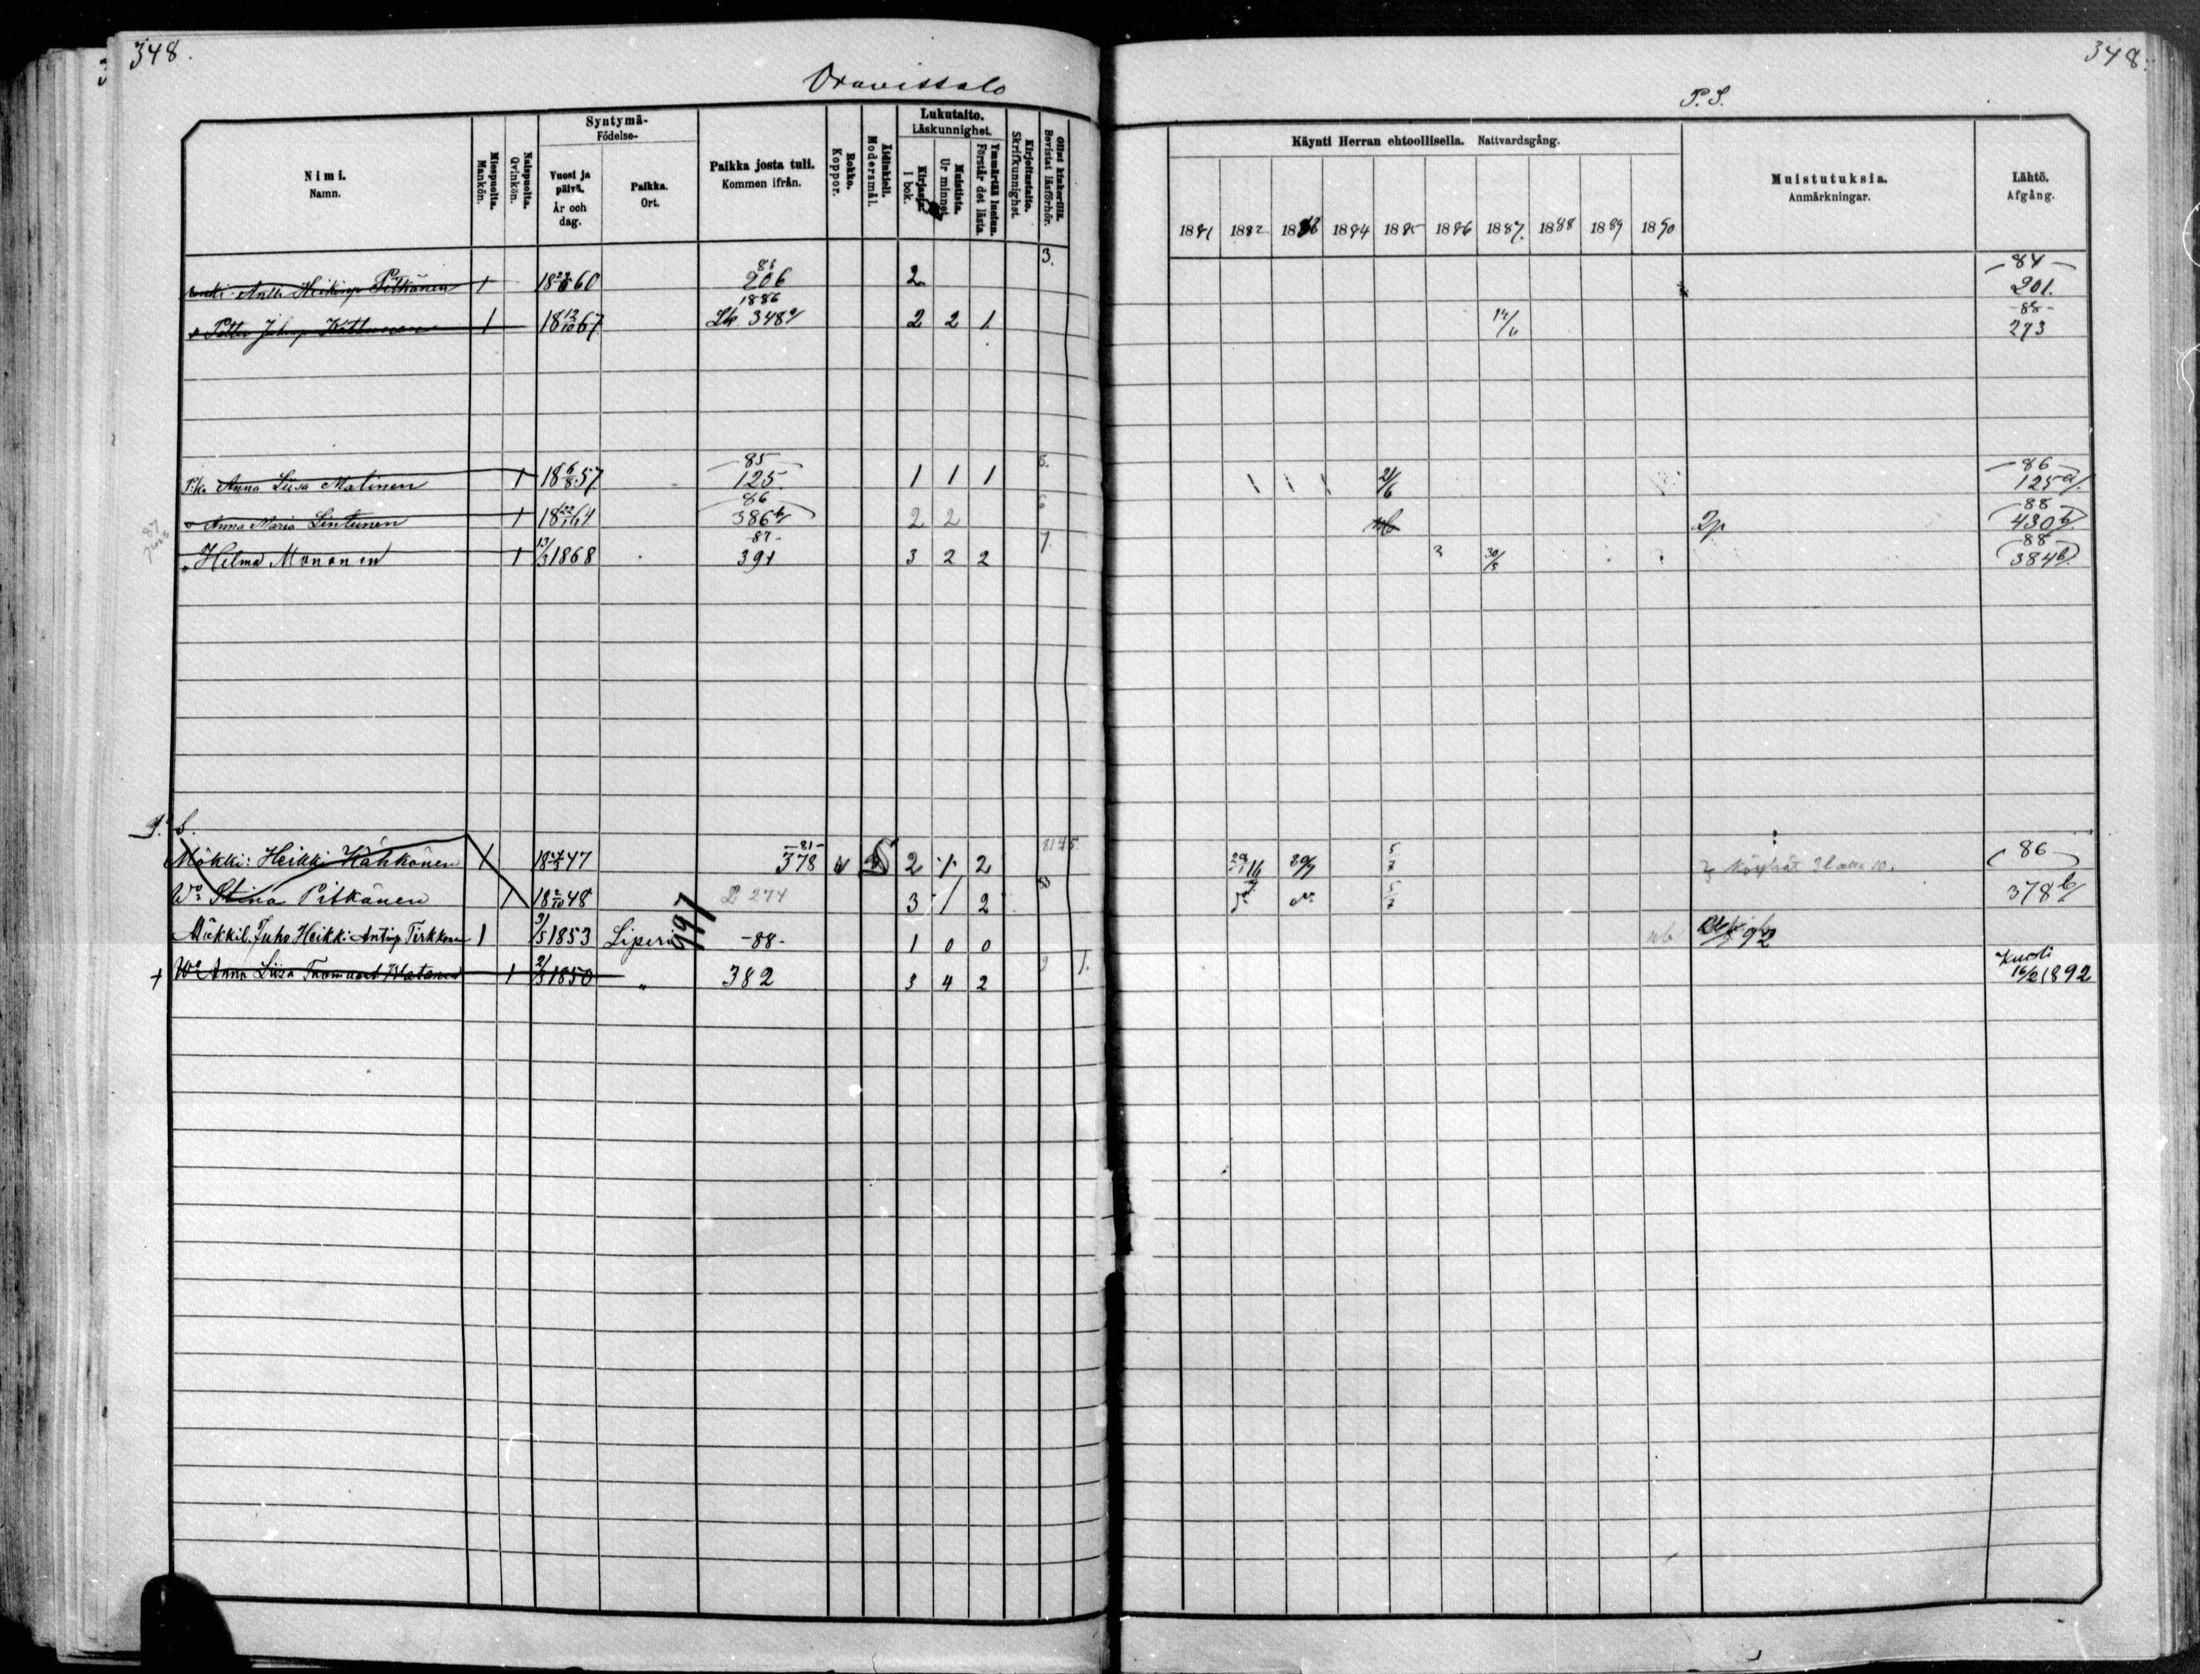 348.
348.
Oravissalo
P. S.
Nimi.
Namn.
Miespuolta.
Mankön.
Naispuolta.
Qvinkön.
Syntymä-
Födelse-
Vuosi ja päivä.
År och dag.
Paikka.
Ort.
Paikka josta tuli.
Kommen ifrån.
Rokko.
Koppor.
Äidinkieli.
Modersmål.
Lukutaito.
Läskunnighet.
Kirjasta.
I bok.
Muistista.
Ur minnet.
Ymmärtää luetun.
Förstår det lästa.
Kirjoitustaito.
Skrifkunnighet.
Ollut kinkerillä.
Bevistat läsförhör.
Käynti Herran ehtoollisella. Nattvardsgång.
1881 1882 1883 1884 1885 1886 1887 1888 1889 1890
Muistutuksia.
Anmärkningar.
Lähtö.
Afgång.
3.
Antti Heikinp Pitkänen 1 1860 83 206 2 84 201.
Petter Juhanp Kattunen 1 18 12/10 67 1886 348 a/ 2 2 1 88 273
P.k. Anna Liisa Malinen 1 18 6/8 57 85 125 1 1 1 5. 21/6 86 125 a/.
Anna Maria Lintunen 1 18 64 86 386 b/ 2 2 6 2p 88 430 b/.
" Helma Mononen 1 13/3 1868 87 391 3 2 2 7. 30/5 88 384 b/.
S.
Mökki: Heikki Kähkönen 1 18 47 -81- 378 2 1 2 5/7 86
Wo Stina Pitkänen 1 18 2/10 48 274 3 1 2 5/7 378 b/
Mökkil. Juho Heikki Antinp Tirkkonen 1 3/5 1853 Liperi -88- 1 0 0 92
+ Wo Anna Liisa Tuomaant Matanen 1 2/3 1850 " 382 3 4 2 1. Kuoli 16/2 1892